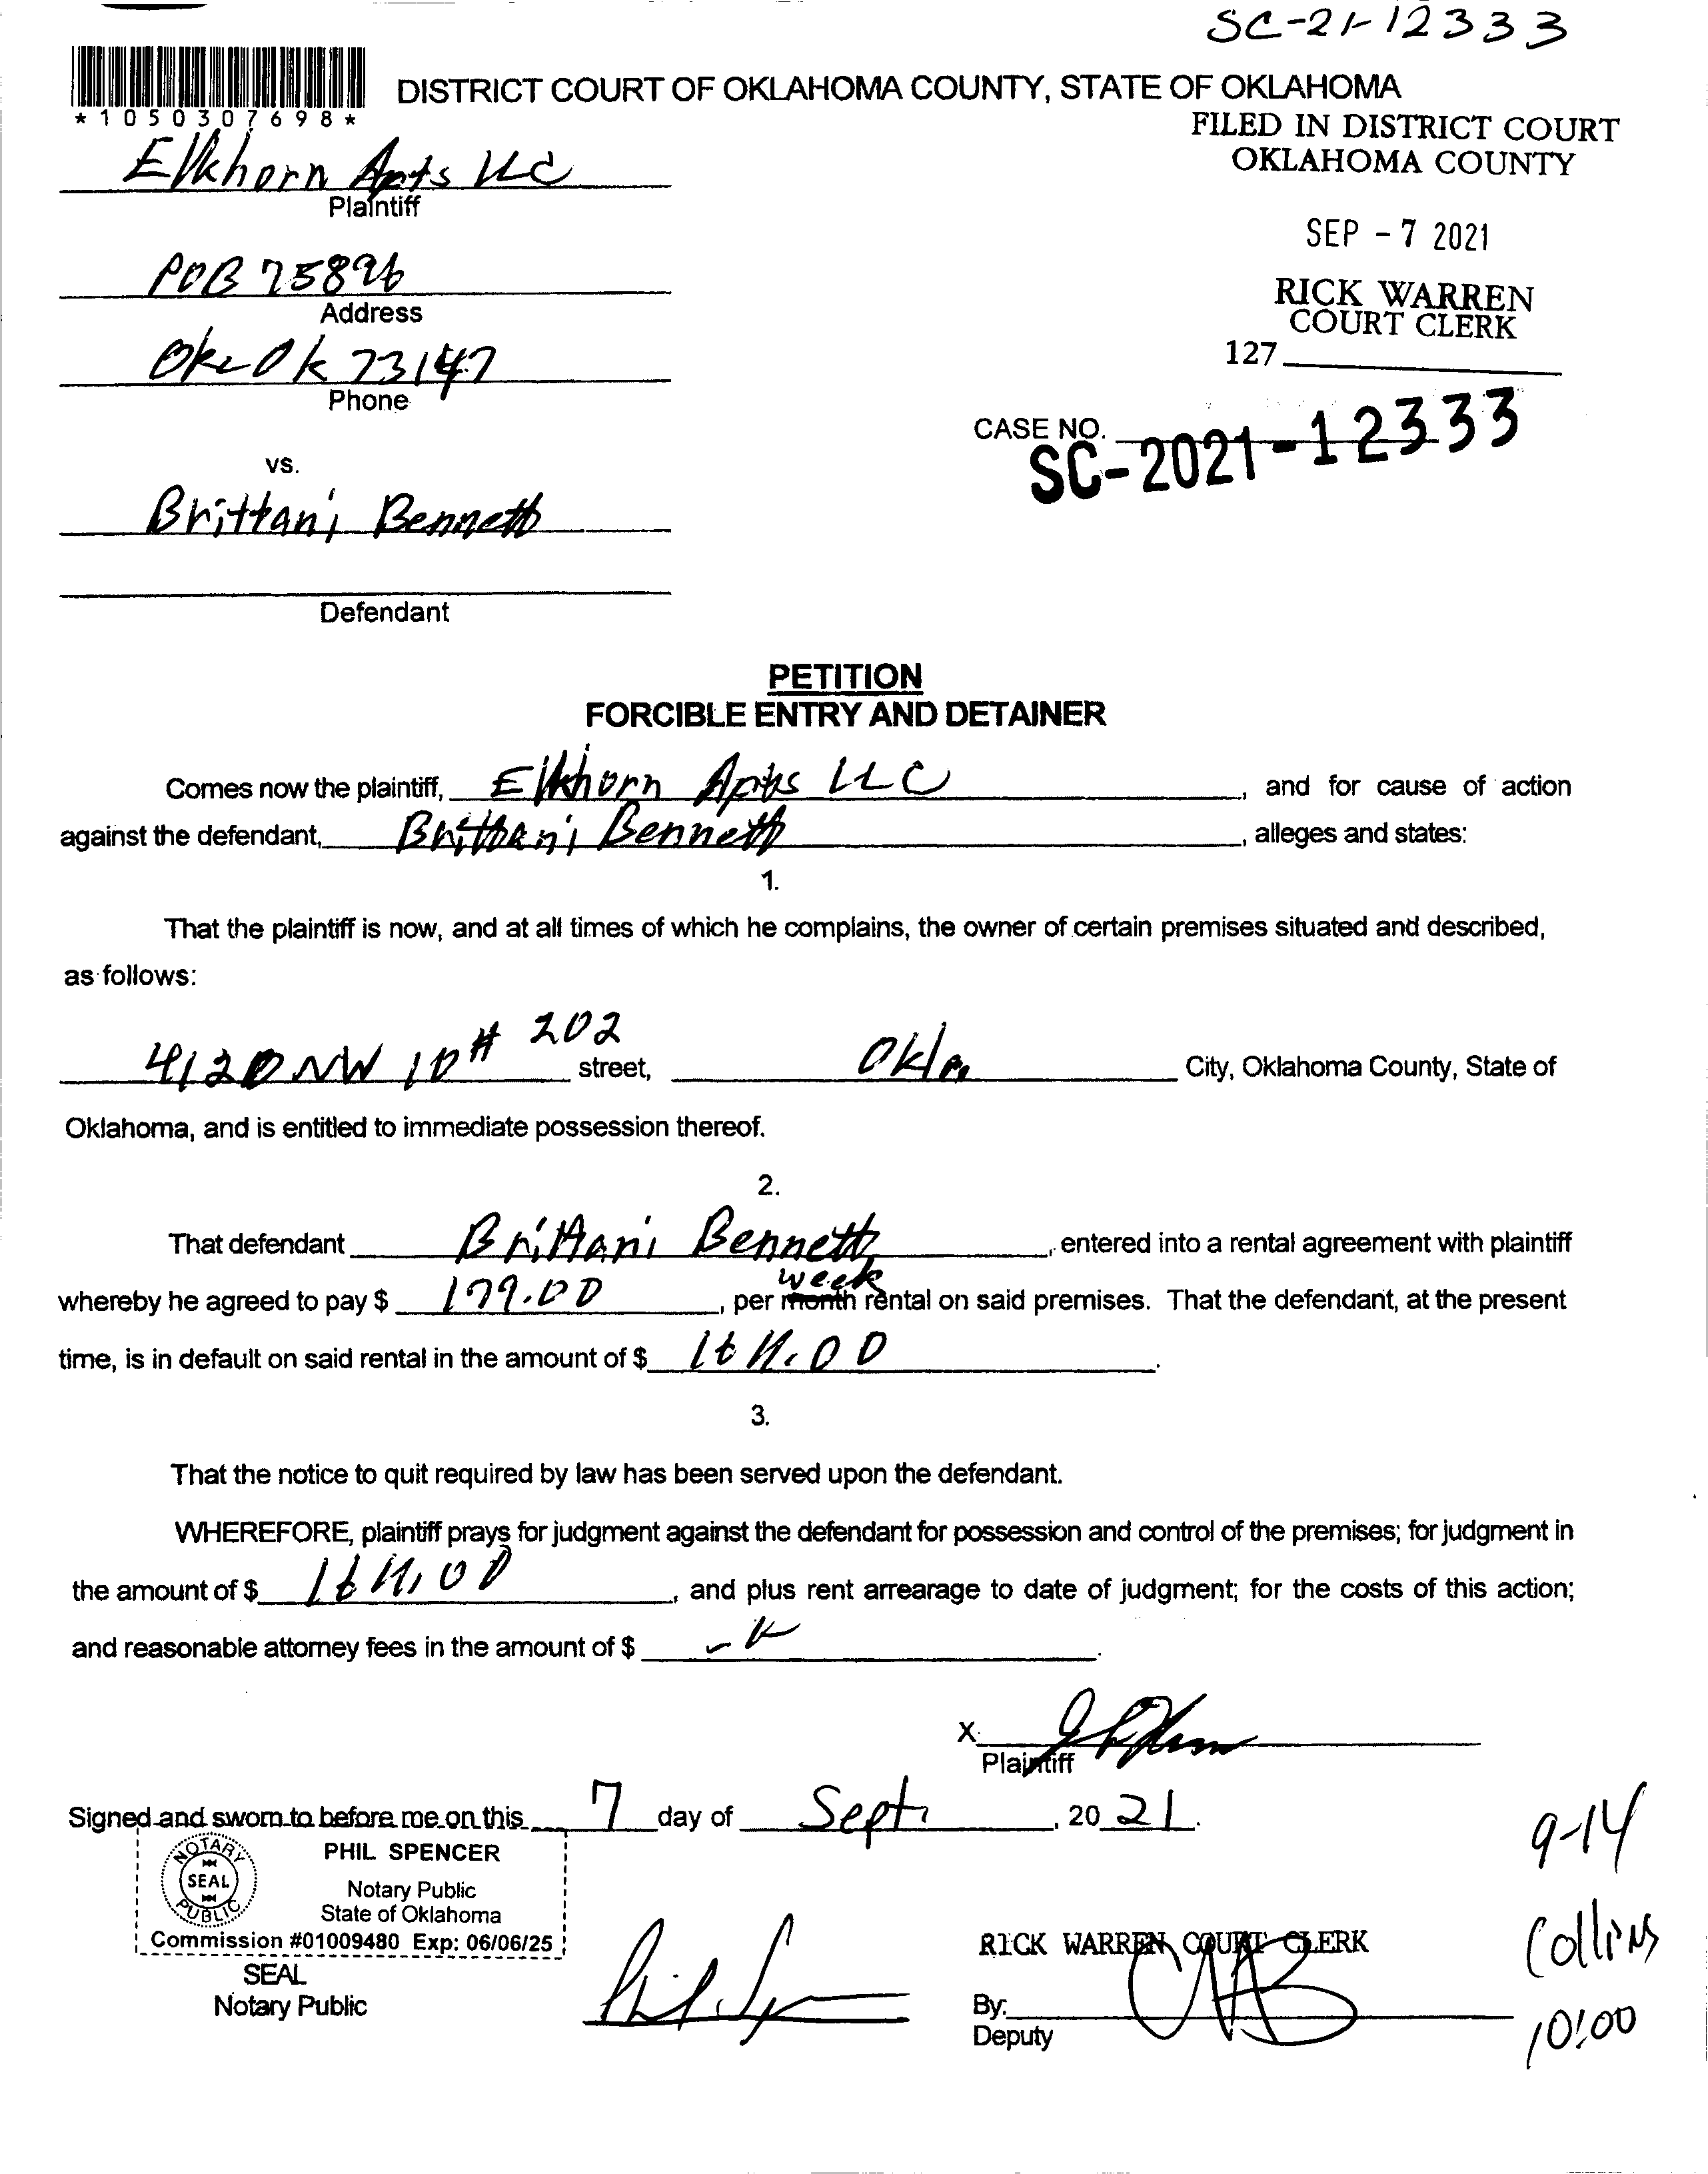 SC-21-12333
*1050307698*
DISTRICT COURT OF OKLAHOMA COUNTY, STATE OF OKLAHOMA
FILED IN DISTRICT COURT
OKLAHOMA COUNTY
Elkhorn Apts LLC
Plaintiff
SEP - 7 2021
POB 75896
Address
RICK WARREN
COURT CLERK
Okc Ok 73147
Phone
127
CASE NO.
SC-2021-12333
vs.
Brittani Bennett
Defendant
PETITION
FORCIBLE ENTRY AND DETAINER
Comes now the plaintiff, Elkhorn Apts LLC, and for cause of action
against the defendant, Brittani Bennett, alleges and states:
1.
That the plaintiff is now, and at all times of which he complains, the owner of certain premises situated and described,
as follows:
4120 NW 10 # 202 street, Okla City, Oklahoma County, State of
Oklahoma, and is entitled to immediate possession thereof.
2.
That defendant Brittani Bennett, entered into a rental agreement with plaintiff
week
whereby he agreed to pay $ 179.00, per month rental on said premises. That the defendant, at the present
time, is in default on said rental in the amount of $ .
3.
That the notice to quit required by law has been served upon the defendant.
WHEREFORE, plaintiff prays for judgment against the defendant for possession and control of the premises; for judgment in
the amount of $ , and plus rent arrearage to date of judgment; for the costs of this action;
and reasonable attorney fees in the amount of $ .
X
Plaintiff
Signed and sworn to before me on this 7 day of Sept, 20 21.
NOTARY PUBLIC
SEAL
PHIL SPENCER
Notary Public
State of Oklahoma
Commission #01009480 Exp: 06/06/25
SEAL
Notary Public
RICK WARREN, COURT CLERK
By:
Deputy
9-14
Collins
10:00